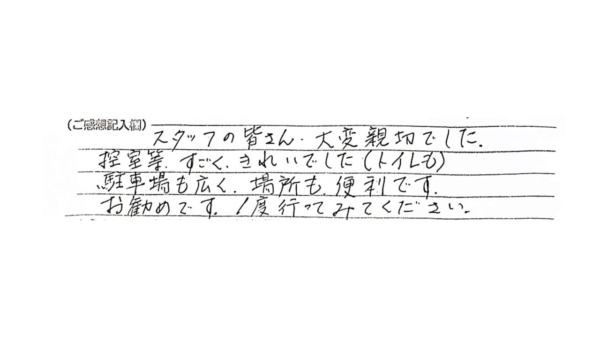 (ご感想記入欄)
スタッフの皆さん、大変親切でした。
控室等、すごく、きれいでした(トイレも)
駐車場も広く、場所も、便利です。
お勧めです。1度行ってみてください。